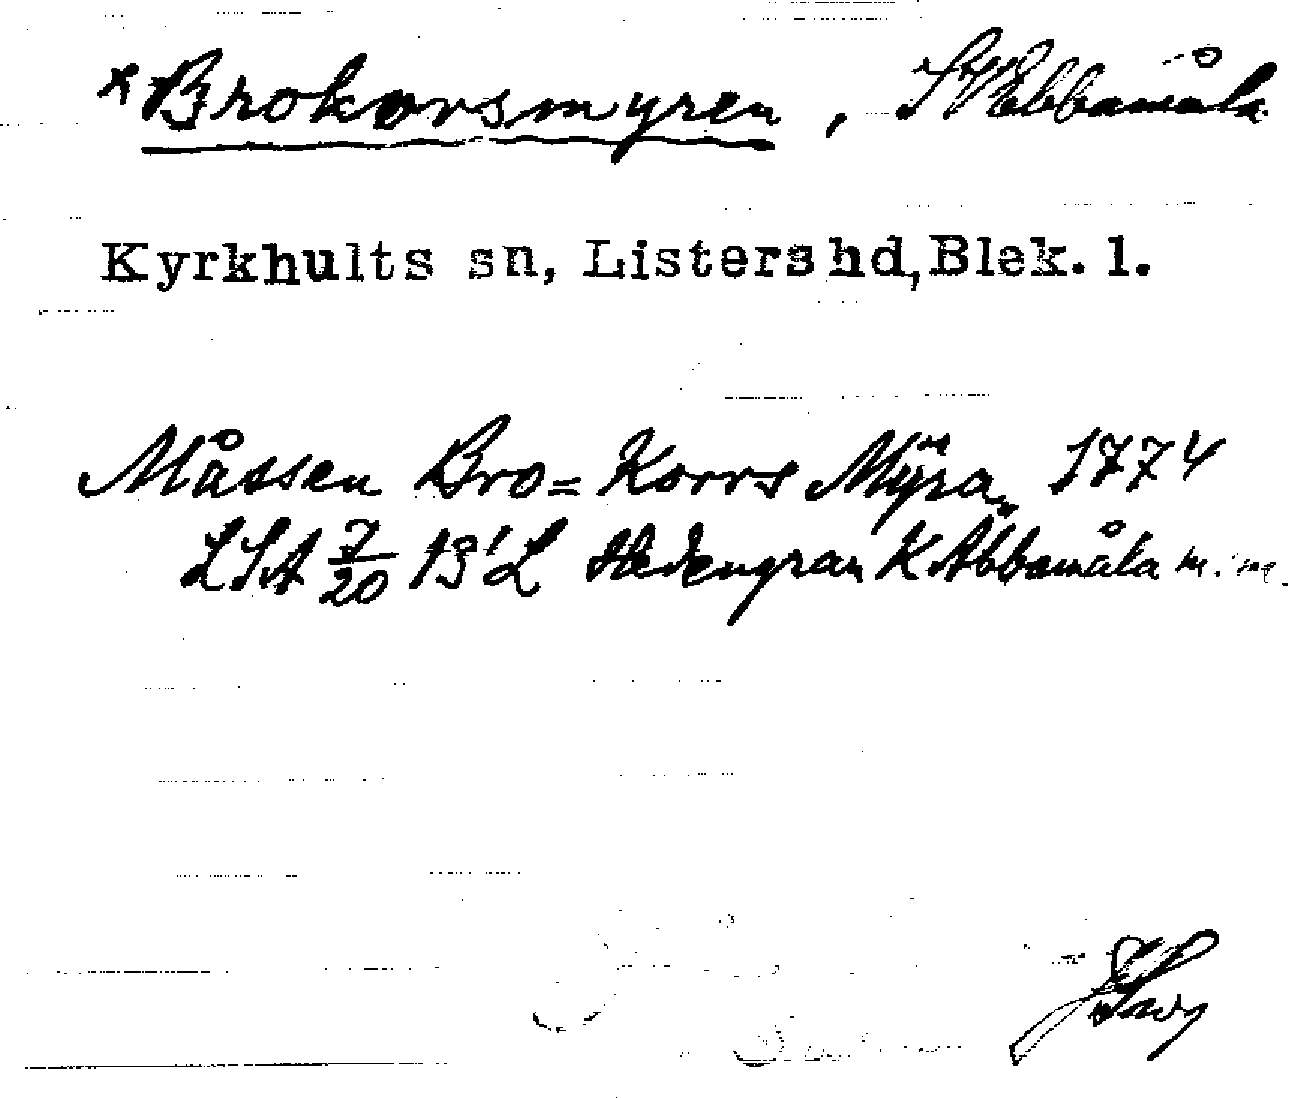 × Brokorsmyren, SV Ebbamåla
Kyrkhults sn, Listers hd, Blek. l.
Måssen Bro= Korrs Mÿra, 1774
LSA 7/20 B'L Hedengran K Abbamåla m. m.